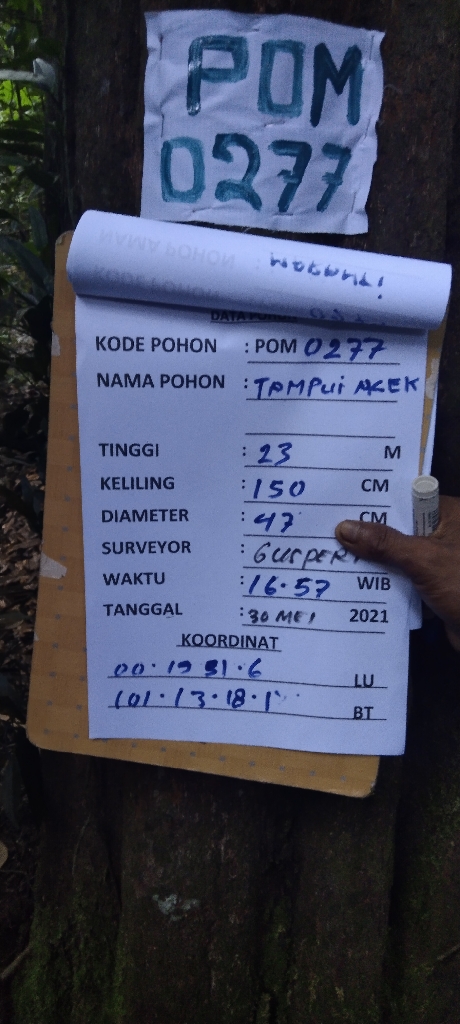 POM
0277
NAMA POHON
KODE POHON
DATA POHON
KODE POHON : POM 0277
NAMA POHON : TAMPUI AGEK
TINGGI : 23 M
KELILING : 150 CM
DIAMETER : 47 CM
SURVEYOR :
WAKTU : 16.57 WIB
TANGGAL : 30 MEI 2021
KOORDINAT
LU
BT